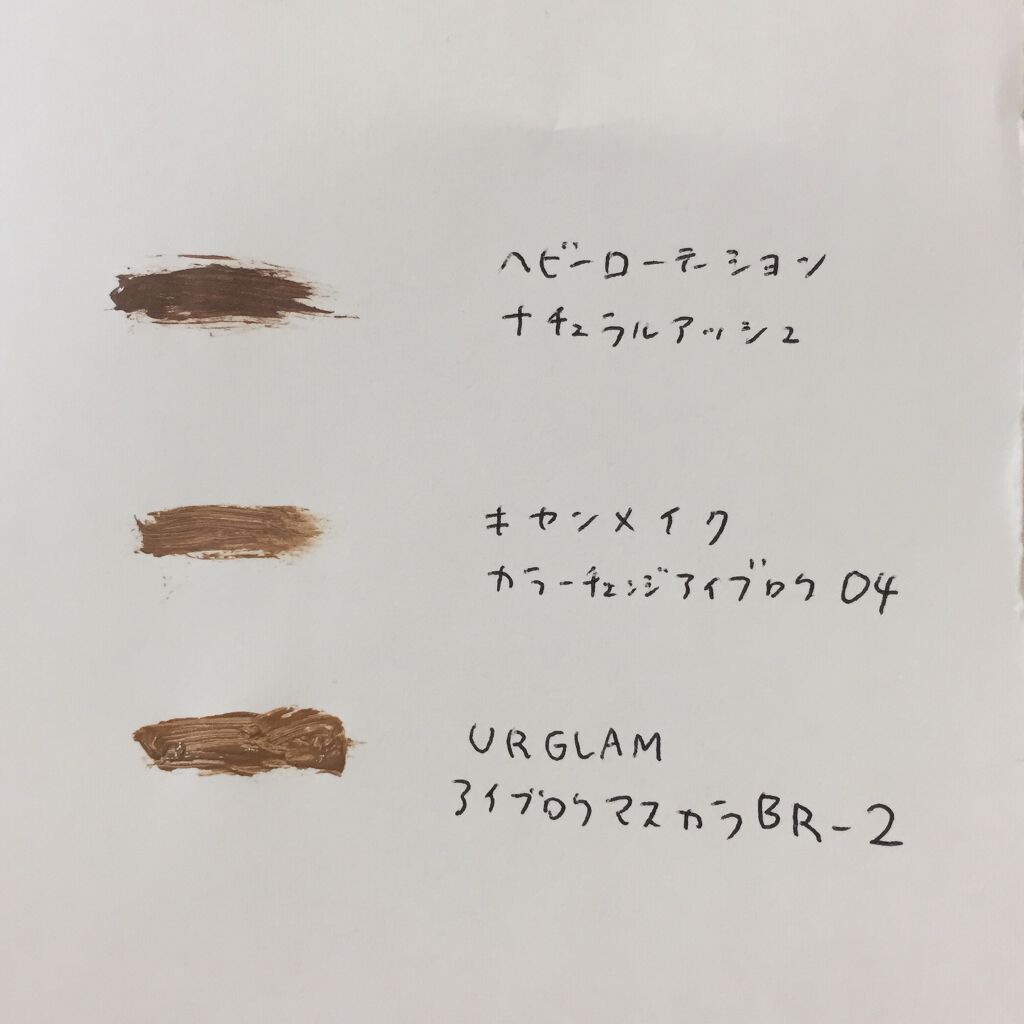 ヘビーローテーション
ナチュラルアッシュ
キャンメイク
カラーチェンジアイブロウ 04
URGLAM
アイブロウマスカラBR-2